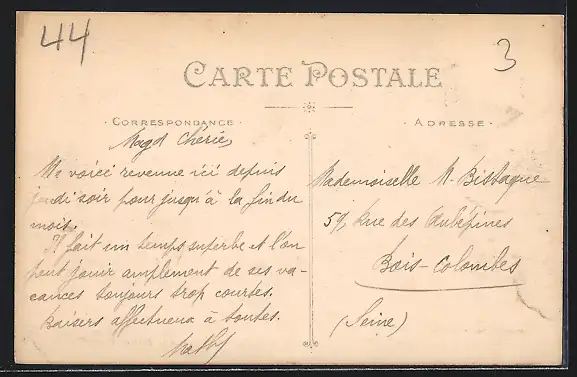 44
3
CARTE POSTALE
· CORRESPONDANCE ·
Magd Chérie,
Me voici revenue ici depuis
jeudi soir pour jusqu'à la fin du
mois.
Il fait un temps superbe et l'on
peut jouir amplement de ses va-
cances toujours trop courtes.
Baisers affectueux à toutes.
· ADRESSE ·
Mademoiselle M. Bistaque
59, Rue des Aubépines
Bois-Colombes
(Seine)